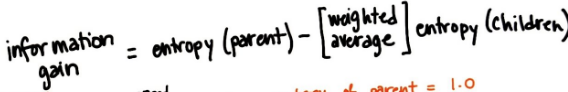 information gain = entropy (parent) – [weighted average] entropy (children)
of parent = 1.0